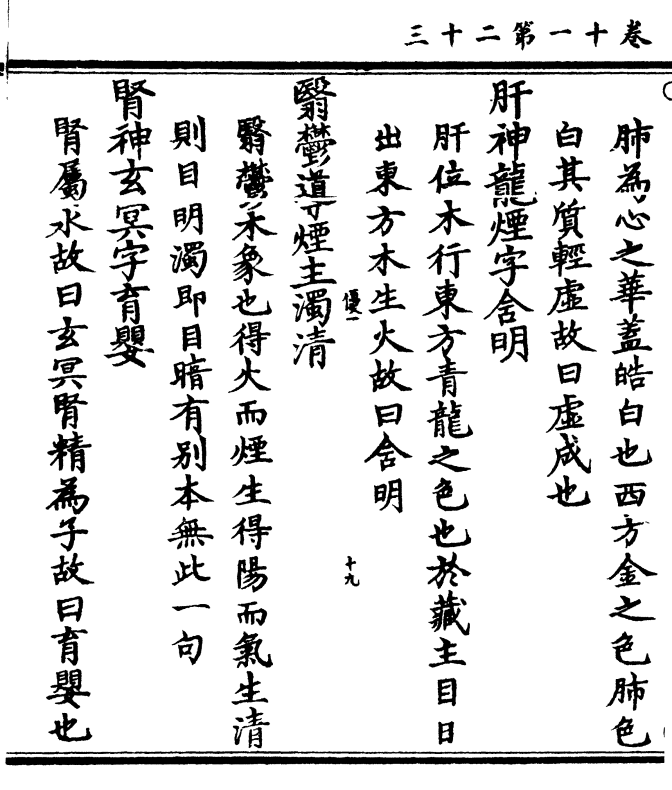 卷十一第二十三
肺為心之華蓋皓白也西方金之色肺色
白其質輕虛故曰虛成也
肝神龍煙字含明
肝位木行東方青龍之色也於藏主目日
出東方木生火故曰含明
優一
十九
翳鬱道煙主濁清
翳鬱木象也得火而煙生得陽而氣生清
則目明濁即目暗有別本無此一句
腎神玄冥字育嬰
腎屬水故曰玄冥腎精為子故曰育嬰也